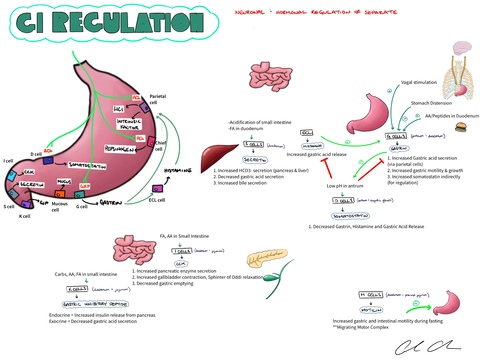 GI REGULATION
NEURONAL : HORMONAL REGULATION OF SEPARATE
ACh
Parietal
cell
HCl
INTRINSIC
FACTOR
ACh
Chief
cell
PEPSINOGEN
D cell
SOMATOSTATIN
I cell
CCK
SECRETIN
MUCUS
GRP
HISTAMINE
S cell
GIP
Mucous
cell
G cell
GASTRIN
ECL cell
K cell
-Acidification of small intestine
-FA in duodenum
S CELLS
SECRETIN
1. Increased HCO3- secretion (pancreas & liver)
2. Decreased gastric acid secretion
3. Increased bile secretion
ECL
HISTAMINE
Increased gastric acid release
Vagal stimulation
Stomach Distension
AA/Peptides in Duodenum
G CELLS
GASTRIN
1. Increased Gastric acid secretion
(via parietal cells)
2. Increased gastric motility & growth
3. Increased somatostatin indirectly
(for regulation)
Low pH in antrum
D CELLS
SOMATOSTATIN
1. Decreased Gastrin, Histamine and Gastric Acid Release
FA, AA in Small Intestine
I CELLS
CCK
1. Increased pancreatic enzyme secretion
2. Increased gallbladder contraction, Sphinter of Oddi relaxation
3. Decreased gastric emptying
Carbs, AA, FA in small intestine
K CELLS
GASTRIC INHIBITORY PEPTIDE
Endocrine = Increased insulin release from pancreas
Exocrine = Decreased gastric acid secretion
M CELLS
MOTILIN
Increased gastric and intestinal motility during fasting
**Migrating Motor Complex